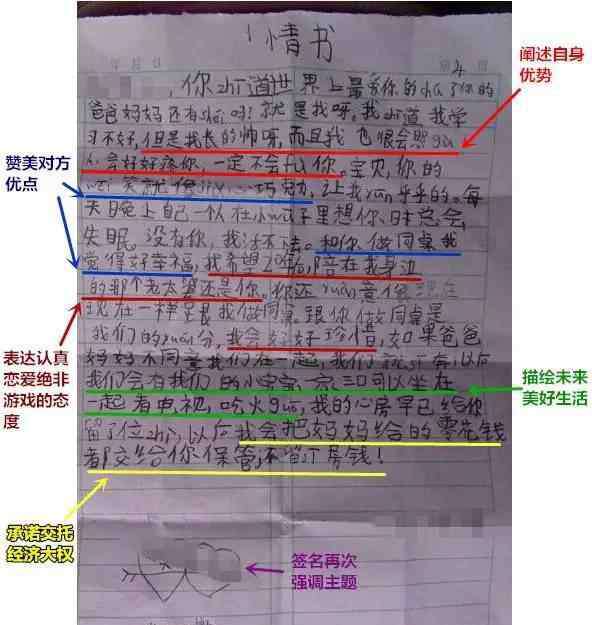 情书
年 月 日
第 页
阐述自身
优势
,你zhi道世界上最爱你的chu了你的
爸爸妈妈还有shui吗!就是我呀。我zhi道我学
习不好,但是我长的帅呀,而且我也很会照gu
人会好好疼你,一定不会
你。宝贝,你的
笑就像
巧克力,让我
乎乎的。每
天晚上自己一个人在小
子里想你、日寸总会,
失眠。没有你,我活不
。和你做同桌我
觉得好幸福,我希望
陪在我身边
的那个老太婆还是你。你还yuan意像现在
现在一样
跟我做同桌。跟你做同桌是
我们的yuan分,我会好好珍惜,如果爸爸
妈妈不同意我们在一起,我们就
以后
我们会有我们的小宝宝一家三口可以坐在
一起看电视,吃火guo,我的心房早已给你
留了位zhi,以后我会把妈妈给的零花钱
都交给你保管,不留
房钱!
赞美对方
优点
表达认真
恋爱绝非
游戏的态
度
描绘未来
美好生活
承诺交托
经济大权
签名再次
强调主题